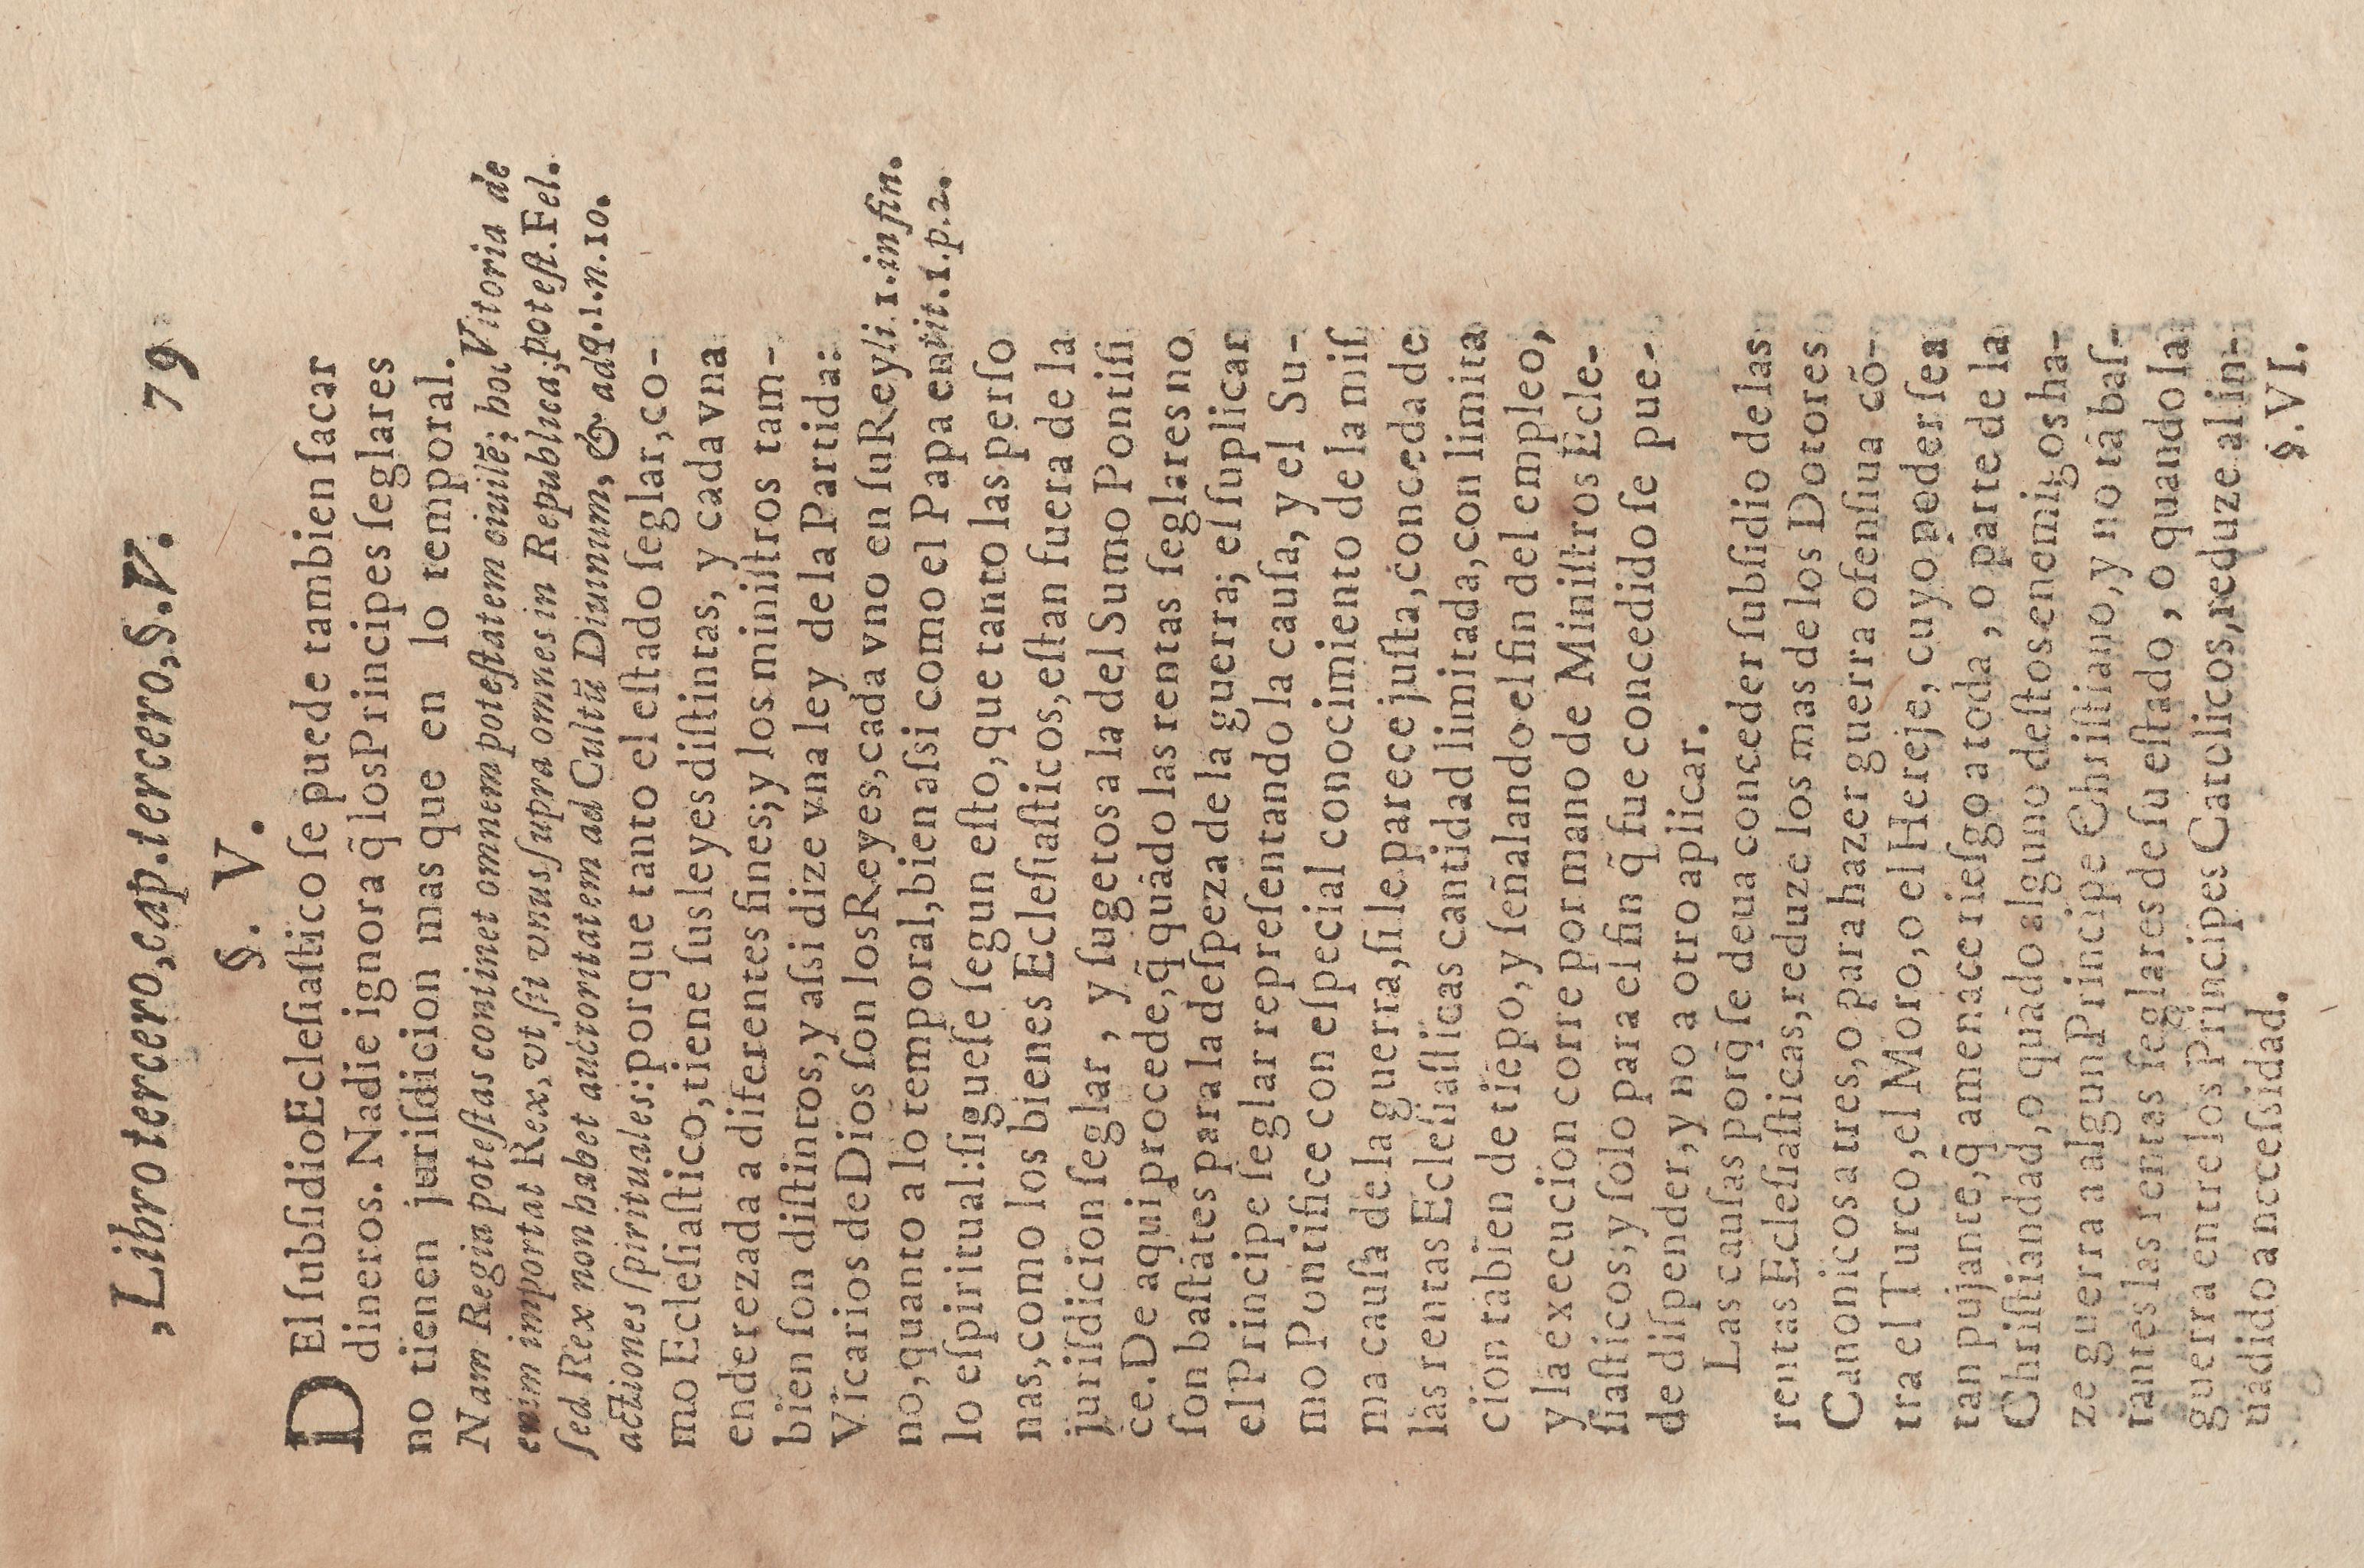 ,Libro tercero,cap.tercero,§.V. 79
§. V.
DEl ſubſidio Ecleſiaſtico ſe puede tambien ſacar
dineros. Nadie ignora q̃ los Principes ſeglares
no tienen juriſdicion mas que en lo temporal.
Nam Regia poteſtas continet omnem poteſtatem ciuilẽ; hoc Vitoria de
enim importat Rex, vt ſit vnus ſupra omnes in Republica; poteſt. Fel.
ſed Rex non habet auctoritatem ad Cultũ Diuinum, & ad q.1.n.10.
actiones ſpirituales: porque tanto el eſtado ſeglar, co-
mo Ecleſiaſtico, tiene ſus leyes diſtintas, y cada vna
enderezada a diferentes fines; y los miniſtros tam-
bien ſon diſtintos, y aſsi dize vna ley de la Partida:
Vicarios de Dios ſon los Reyes, cada vno en ſu Rey li.1. in fin.
no, quanto a lo temporal, bien aſsi como el Papa en tit.1.p.2.
lo eſpiritual: ſigueſe ſegun eſto, que tanto las perſo
nas, como los bienes Ecleſiaſticos, eſtan fuera de la
juriſdicion ſeglar, y ſugetos a la del Sumo Pontifi
ce. De aqui procede, q̃ quãdo las rentas ſeglares no
ſon baſtãtes para la deſpeza de la guerra; el ſuplicar
el Principe ſeglar repreſentando la cauſa, y el Su-
mo Pontifice con eſpecial conocimiento de la miſ
ma cauſa de la guerra, ſi le parece juſta, conceda de
las rentas Ecleſiaſticas cantidad limitada, con limita
cion tabien de tiẽpo, y ſeñalando el fin del empleo,
y la execucion corre por mano de Miniſtros Ecle-
ſiaſticos; y ſolo para el fin q̃ fue concedido ſe pue-
de diſpender, y no a otro aplicar.
Las cauſas porq̃ ſe deua conceder ſubſidio de las
rentas Ecleſiaſticas, reduze los mas de los Dotores
Canonicos a tres, o para hazer guerra ofenſiua cõ-
tra el Turco, el Moro, o el Hereje, cuyo poder ſea
tan pujante, q̃ amenace rieſgo a toda, o parte de la
Chriſtiandad, o quãdo alguno deſtos enemigos ha-
ze guerra a algun Principe Chriſtiano, y no tã baſ-
tantes las rentas ſeglares de ſu eſtado, o quando la
guerra entre los Principes Catolicos, reduze al in-
uadido a neceſsidad. §.VI.